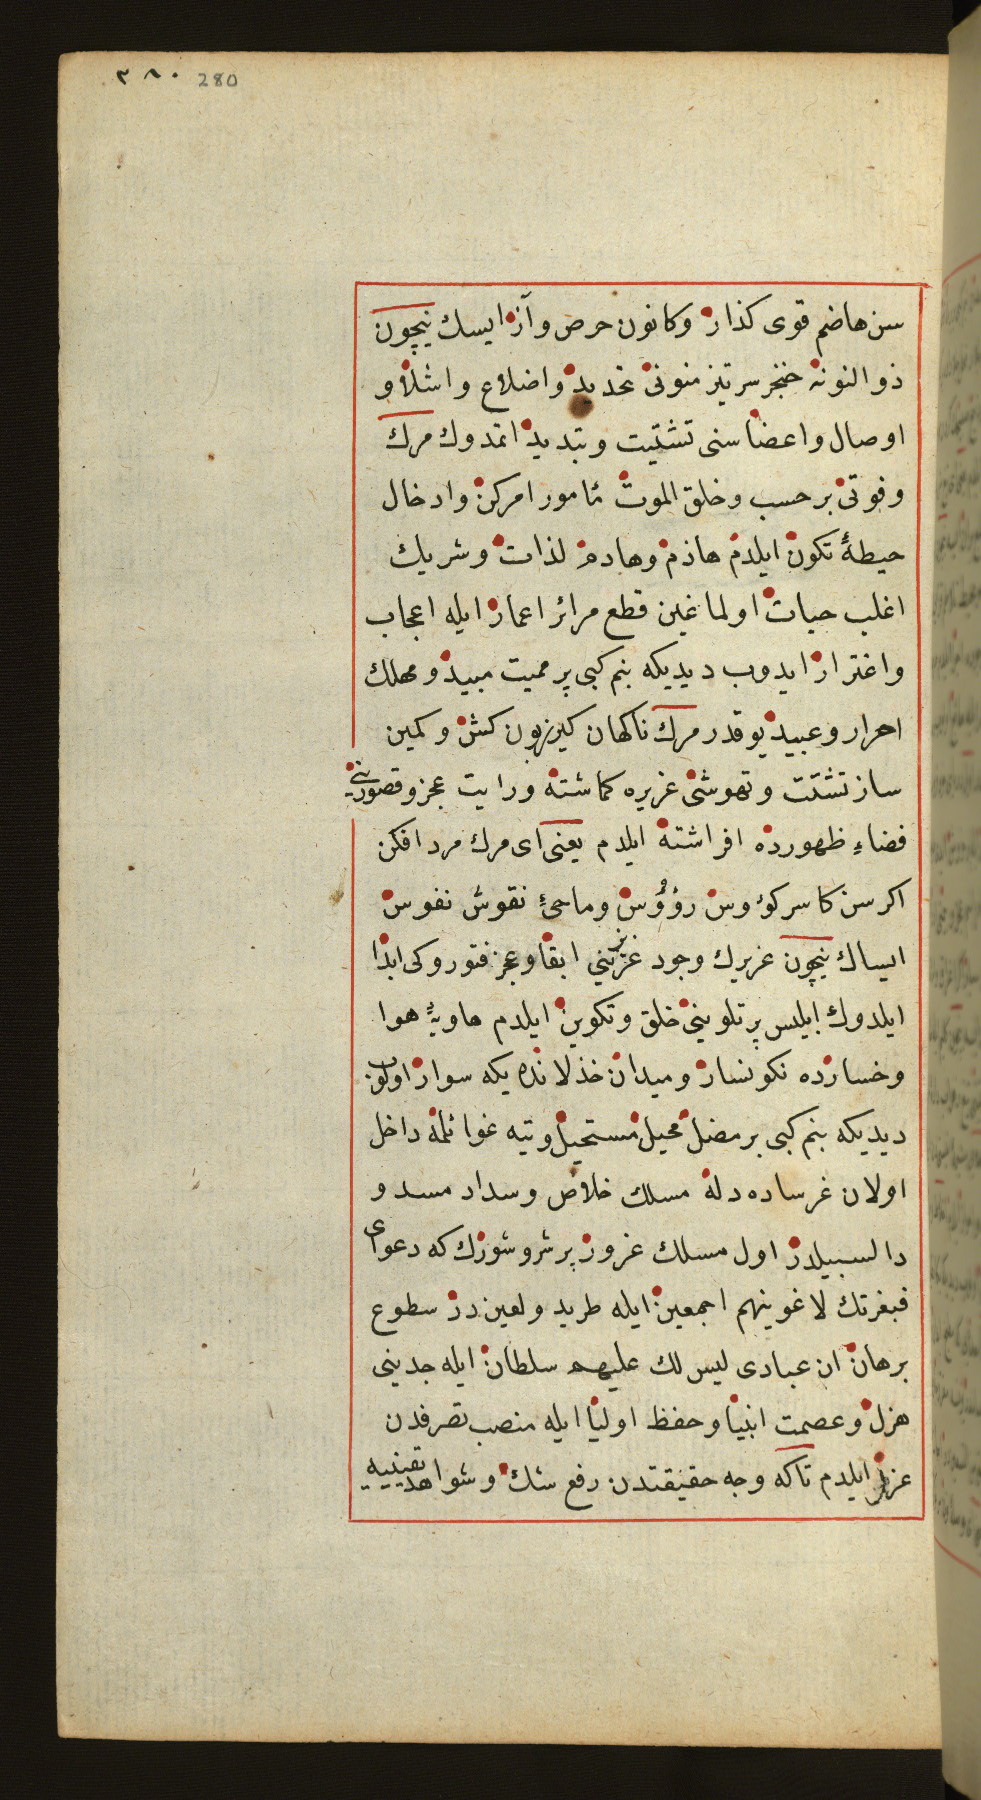 ٢٨٠ 280
سن هاضم قوی كذار وكانون حرص وآز ايسك نيچون
ذو النونه خنجر سر تيز منونى تحديد واضلاع واشلا و
اوصال واعضا سنى تشتيت وتبديد اتمدوك مرك
وفوتى بر حسب وخلق الموت مأمور امر كن وادخال
حيطهٔ تكون ايلدم هاذم وهادم لذات وشريك
اغلب حيات اولماغين قطع مرائر اعمار ايله اعجاب
واغترار ايدوب ديديكه بنم كبى بر مميت مبيد ومهلك
احرار وعبيد يوقدر مرك ناكهان كير زبون كش وكمين
ساز تشتت وتهوشى عزيره كماشته ورايت عجز وقصورينى
فضاء ظهورده افراشته ايلدم يعنى اى مرك مرد افكن
اكر سن كاسر كؤوس رؤوس وماحئ نقوش نفوس
ايسك نيچون عزيرك وجود عزيزينى ابقا وعجز فتوروكى ابدا
ايلدوك ابليس پر تلوينى خلق وتكوين ايلدم هاويهٔ هوا
وخسارده نكونسار وميدان خذلانده يكه سوار اولوب
ديديكه بنم كبى بر مضل محيل مستحيل وتيه غوائلمه داخل
اولان غر ساده دله مسلك خلاص وسداد مسدود
دالسبيلدر اول مسلك غرور پر شر وشورك كه دعواى
فبعزتك لاغوينهم اجمعين ايله طريد ولعين در سطوع
برهان ان عبادى ليس لك عليهم سلطان ايله جدينى
هزل وعصمت انبيا وحفظ اوليا ايله منصب تصرفدن
عزل ايلدم تاكه وجه حقيقتدن رفع شك وشواهد يقينيه